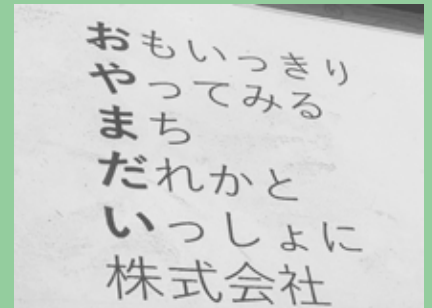 おもいっきり
やってみる
まち
だれかと
いっしょに
株式会社